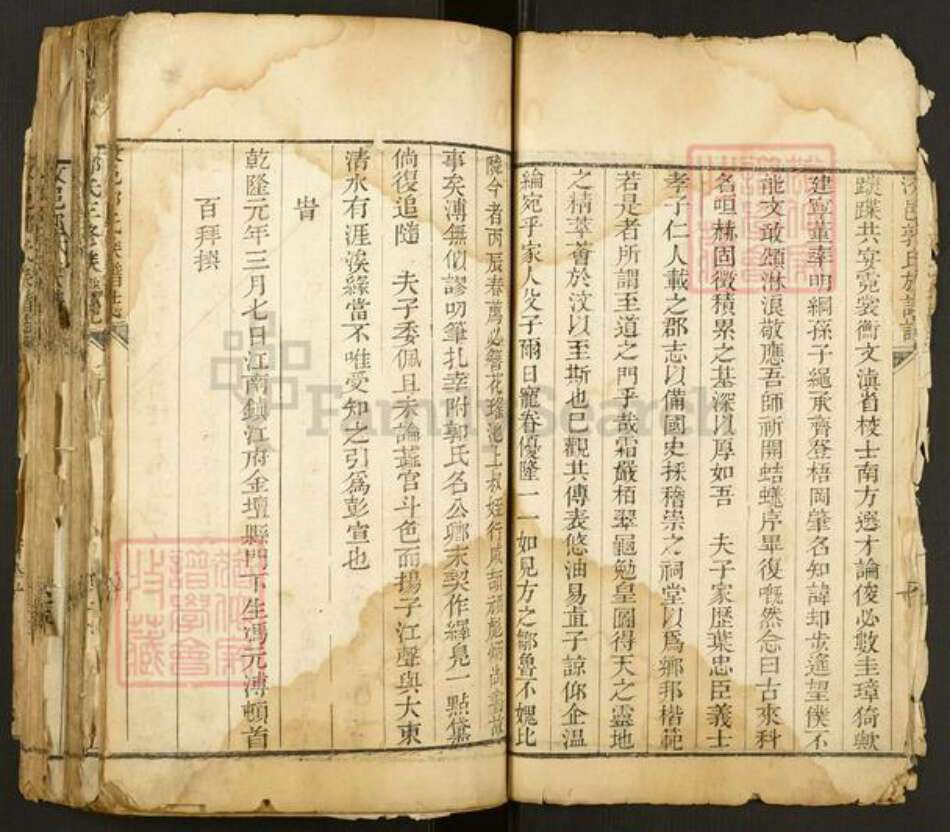 汶邑郭氏族譜誌
蹺蹀共宴霓裳衡文滇省校士南方選才論俊必數圭璋猗歟
建寧董率明綱孫子繩承齊登梧岡肇名知諱却步遙望僕不
能文敢頌淋浪敬應吾師祈開蛣蜣序畢復慨然念曰古來科
名咺赫固徵積累之基深以厚如吾 夫子家歷葉忠臣義士
孝子仁人載之郡志以備國史採稽崇之祠堂以爲鄉邦楷範
若是者所謂至道之門乎哉霜嚴栢翠黽勉皇圖得天之靈地
之精萃薈於汶以至斯也已觀共傳表悠油易直子諒仰企溫
綸宛乎家人父子爾日寵眷優隆一一如見方之鄒魯不媿比
陵今者丙辰春萬必簪花瑤池上叔姪行
事矣溥無似謬叨筆扎幸附郭氏名公卿末契作繹鳧一點黛
倘復追隨 夫子委佩且未論蓝官斗色而揚子江聲與大東
清水有涯涘緣當不唯受知之引爲彭宣也
旹
乾隆元年三月七日江南鎮江府金壇縣門下生馮元溥頓首
百拜撰
譜學會
收藏
FamilySearch